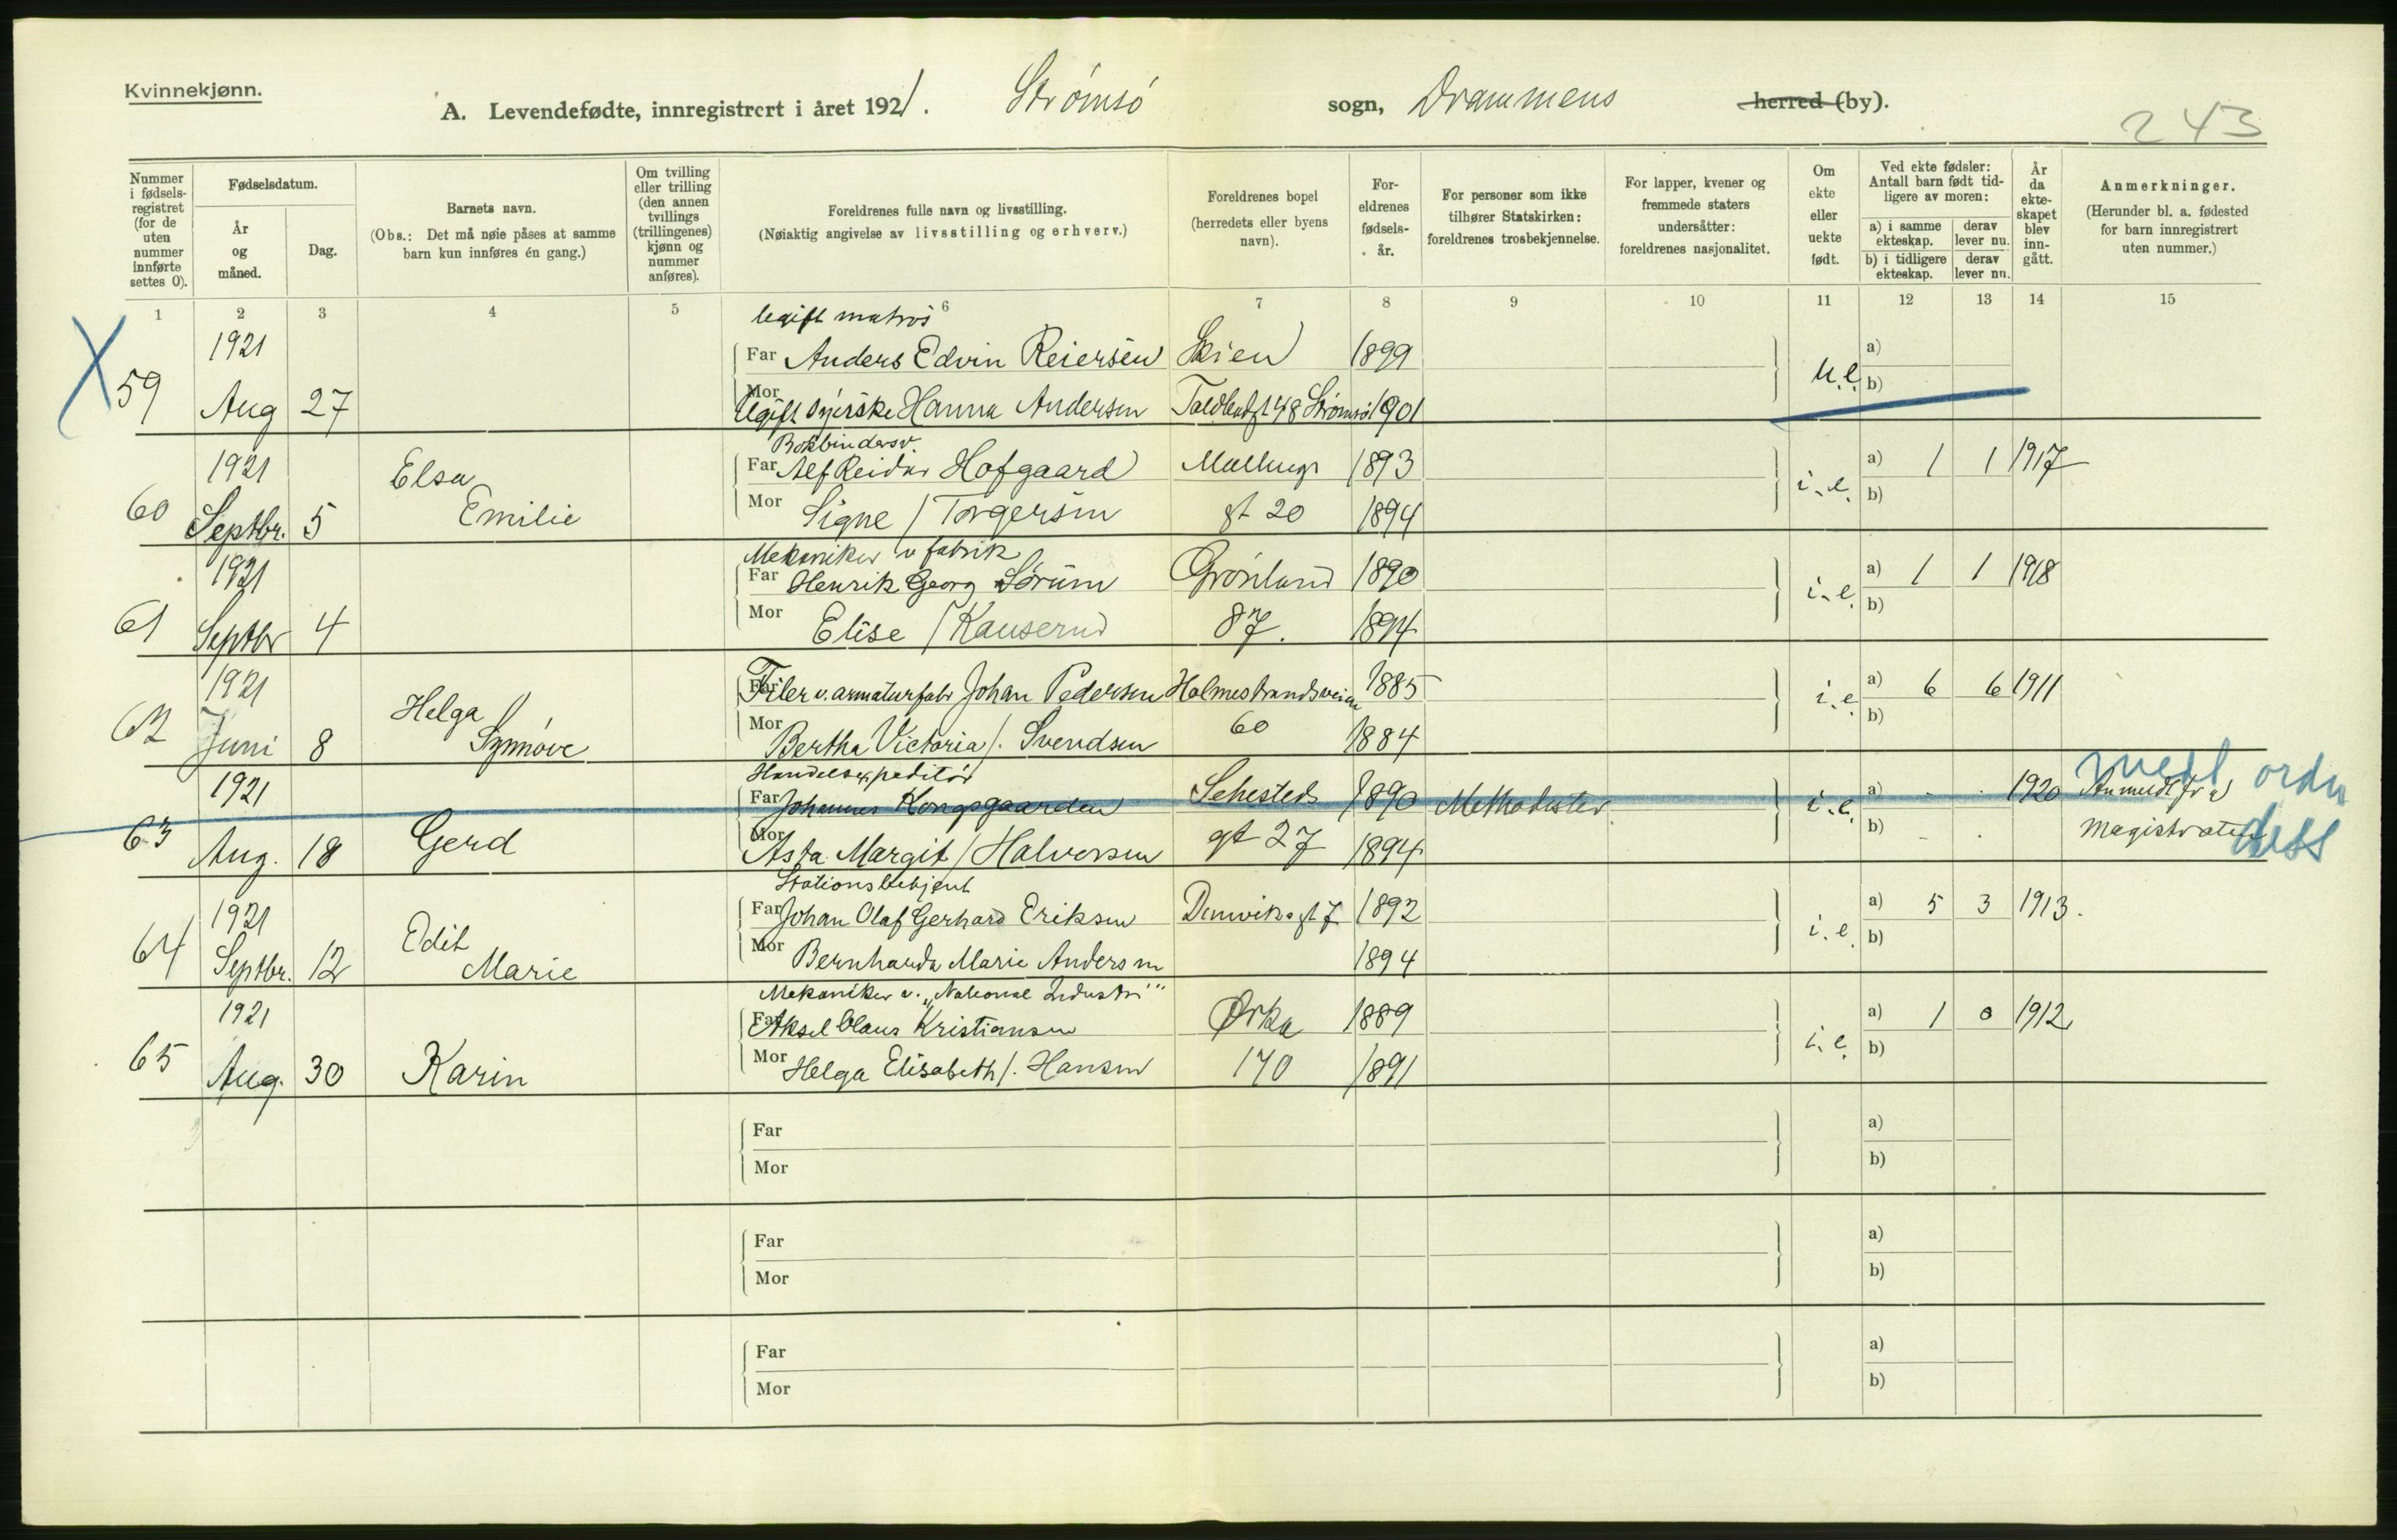 Kvinnekjønn.
A. Levendefødte, innregistrert i året 1921. Strømsø sogn, Drammens herred (by).
243
Nummer i fødsels-registret (for de uten nummer innførte settes 0).
Fødselsdatum.
År og måned.
Dag.
Barnets navn.
(Obs.: Det må nøie påses at samme barn kun innføres én gang.)
Om tvilling eller trilling (den annen tvillings (trillingenes) kjønn og nummer anføres).
Foreldrenes fulle navn og livsstilling.
(Nøiaktig angivelse av livsstilling og erhverv.)
Foreldrenes bopel (herredets eller byens navn).
For-eldrenes fødsels-år.
For personer som ikke tilhører Statskirken: foreldrenes trosbekjennelse.
For lapper, kvener og fremmede staters undersåtter: foreldrenes nasjonalitet.
Om ekte eller uekte født.
Ved ekte fødsler: Antall barn født tid-ligere av moren:
a) i samme ekteskap. derav lever nu.
b) i tidligere ekteskap. derav lever nu.
År da ekte-skapet blev inn-gått.
Anmerkninger.
(Herunder bl. a. fødested for barn innregistrert uten nummer.)
1 2 3 4 5 6 7 8 9 10 11 12 13 14 15
Ugift matros
1921 Far Anders Edvin Reiersen Skien 1899 a)
X 59 Aug 27 Mor Ugift syerske Hanna Andersen 48 Strømsø 1901 u.e. b)
Bokbindersv.
1921 Elsa Far Alf Reidar Hofgaard Mællings 1893 a) 1 1 1917
60 Septbr. 5 Emilie Mor Signe / Torgersen gt 20 1894 i.e. b)
Mekaniker v fabrik
1921 Far Henrik Georg Sørum Grønland 1890 a) 1 1 1918
61 Septbr 4 Mor Elise / Kauserud 87. 1894 i.e. b)
1921 Helga Far Filer v. armaturfabr Johan Pedersen Holmestrandsveien 1885 a) 6 6 1911
62 Juni 8 Synnøve Mor Bertha Victoria /. Svendsen 60 1884 i.e. b)
Handelsexpeditør
1921 Far Johannes Kongsgaarden Sehesteds 1890 Methodister i.e. a) - - 1920 Anmeldt fra
63 Aug. 18 Gerd Mor Asta Margit / Halvorsen gt 27 1894 b) - - Magistraten
Stationsbetjent
1921 Edit Far Johan Olaf Gerhard Eriksen gt 7 1892 a) 5 3 1913.
64 Septbr. 12 Marie Mor Bernharda Marie Andersen 1894 i.e. b)
Mekaniker v. "National Industri"
1921 Far Aksel Claus Kristiansen Ørka 1889 a) 1 0 1912
65 Aug. 30 Karin Mor Helga Elisabeth /. Hansen 170 1891 i.e. b)
Far a)
Mor b)
Far a)
Mor b)
Far a)
Mor b)